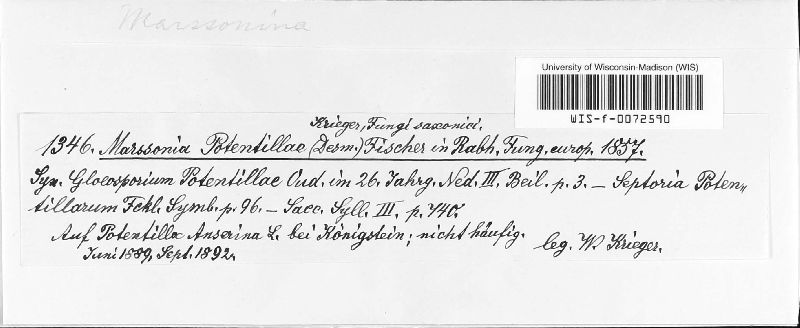 Marssonina
University of Wisconsin-Madison (WIS)
WIS-f-0072590
Krieger, Fungi saxonici.
1346. Marssonia Potentillae (Desm.) Fischer in Rabh. Fung. europ. 1857.
Syn. Gloeosporium Potentillae Oud. im 26. Jahrg. Ned. III. Beil. p. 3. — Septoria Poten-
tillarum Fckl. Symb. p. 96. — Sacc. Syll. III. p. 770.
Auf Potentilla Anserina L. bei Königstein; nicht häufig.
Juni 1889, Sept. 1892.
leg. W. Krieger.